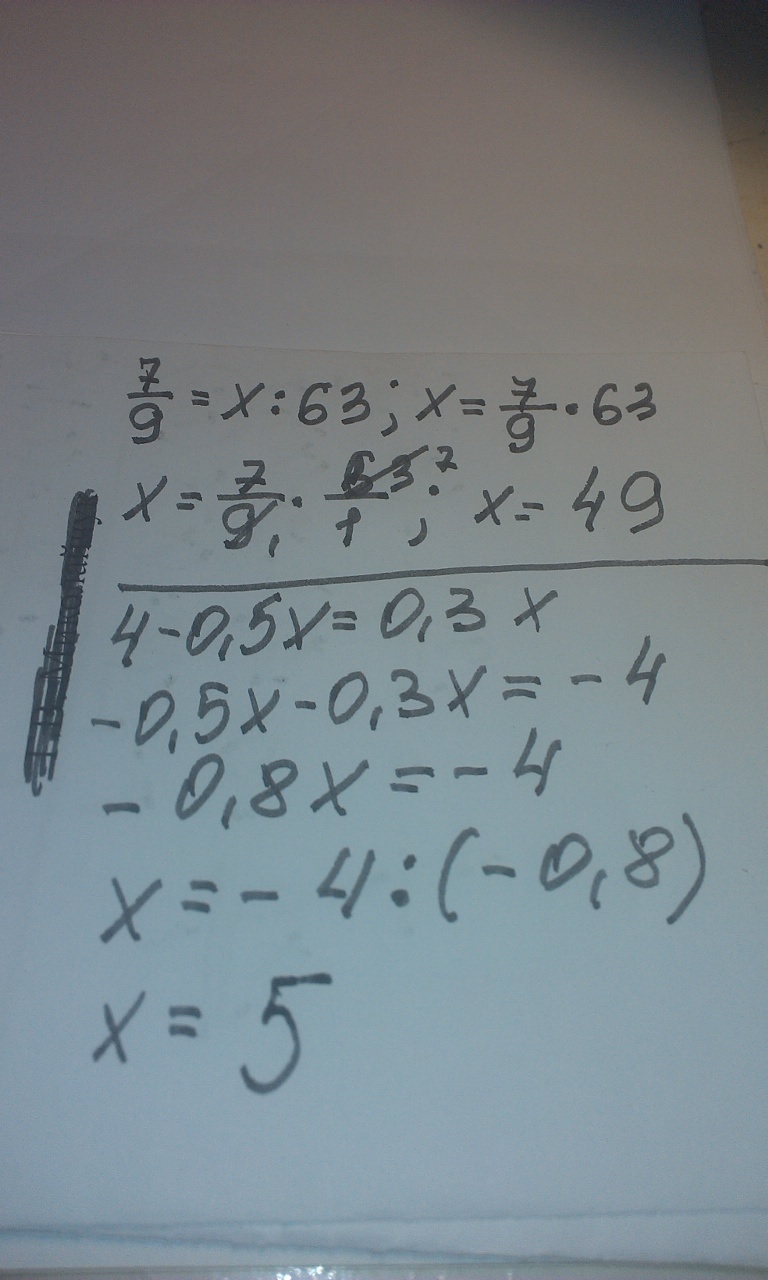 7/9 = x : 63 ; x = 7/9 · 63
x = 7/9 1 · 63 7/1 ; x = 49
4 - 0,5x = 0,3x
-0,5x - 0,3x = -4
-0,8x = -4
x = -4 : (-0,8)
x = 5